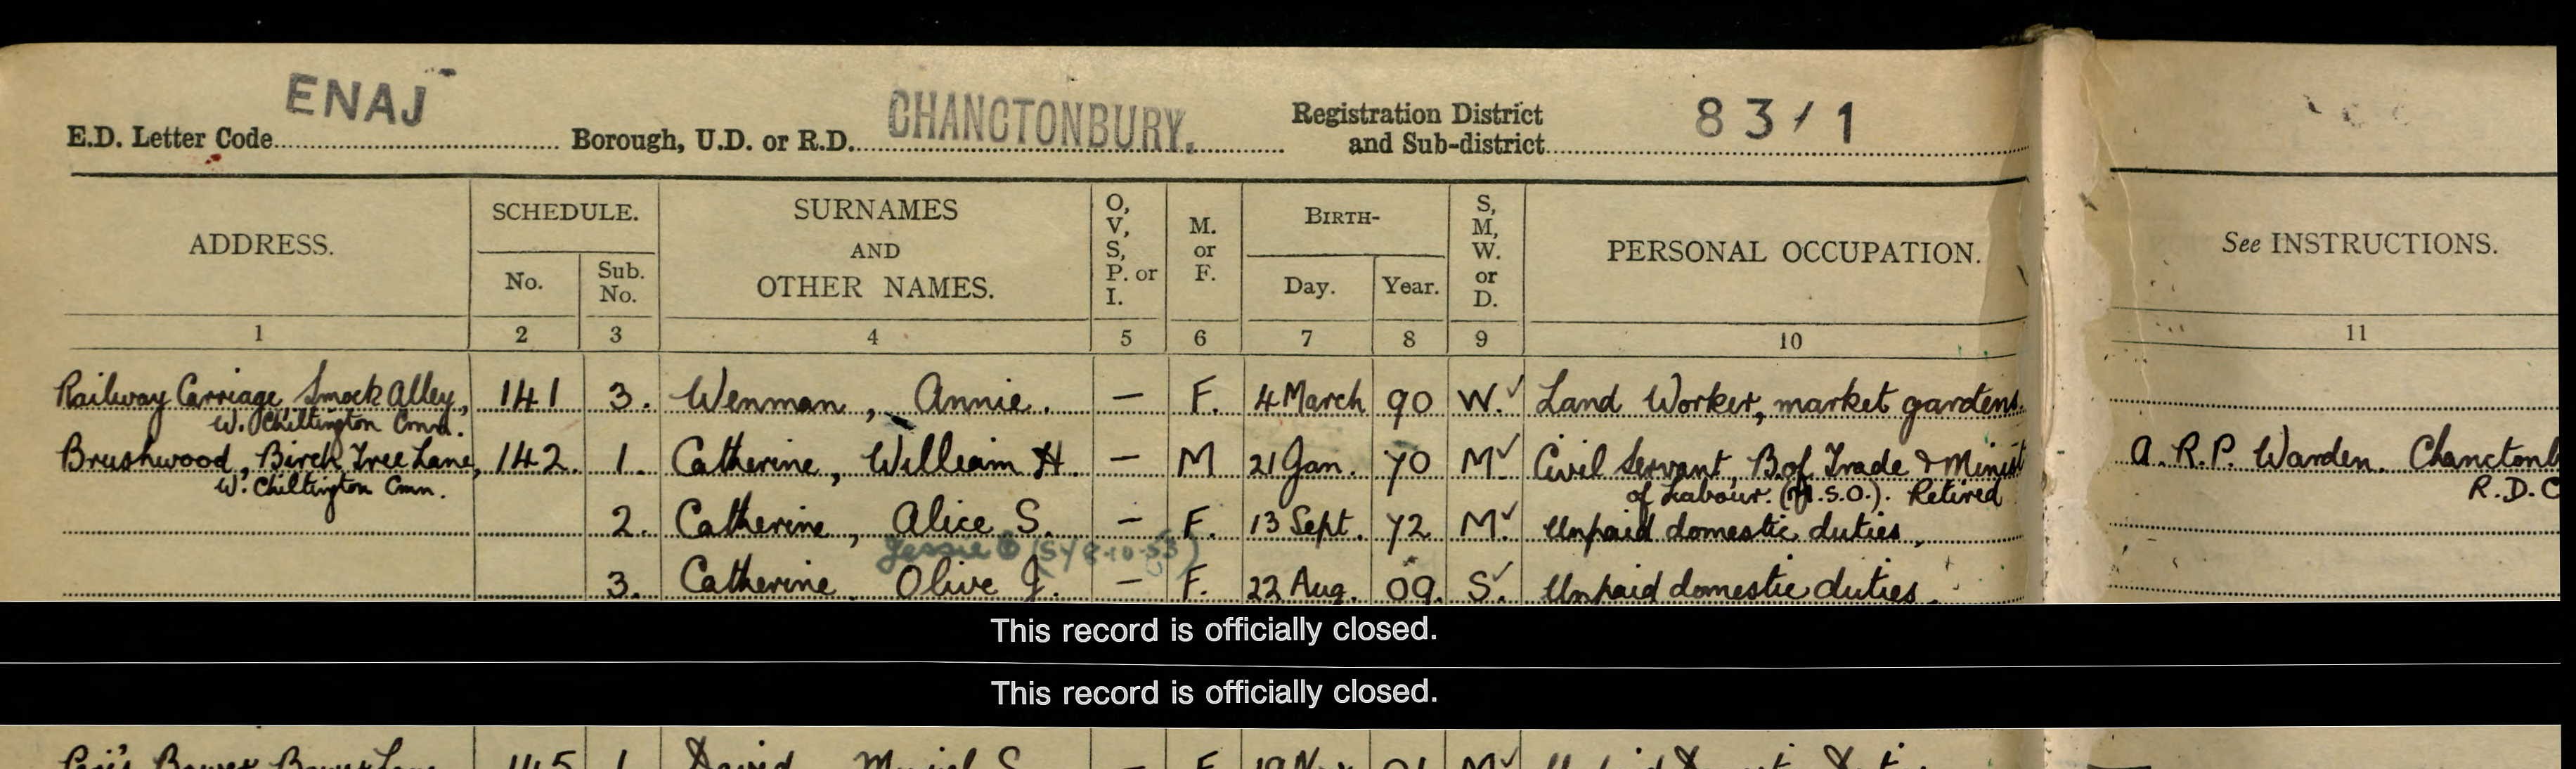 ENAJ
E.D. Letter Code
Borough, U.D. or R.D. CHANCTONBURY.
Registration District and Sub-district 83/1
ADDRESS.
SCHEDULE.
No.
Sub. No.
SURNAMES AND OTHER NAMES.
O, V, S, P. or I.
M. or F.
BIRTH-
Day.
Year.
S, M, W. or D.
PERSONAL OCCUPATION.
See INSTRUCTIONS.
1 2 3 4 5 6 7 8 9 10 11
Railway Carriage, Smock Alley, 141 3. Wenman, Annie. — F. 4 March 90 W. Land Worker, market gardens.
W. Chiltington Cmn.
Brushwood, Birch Tree Lane, 142. 1. Catherine, William H. — M 21 Jan. 70 M Civil Servant, B. of Trade & Minist A.R.P. Warden. Chanctonb
W. Chiltington Cmn. of Labour. (I.S.O.). Retired R.D.C
2. Catherine, Alice S. — F. 13 Sept. 72 M. Unpaid domestic duties.
Jessie
3. Catherine, Olive J. — F. 22 Aug. 09. S. Unpaid domestic duties.
This record is officially closed.
This record is officially closed.
145 1 David Muriel S